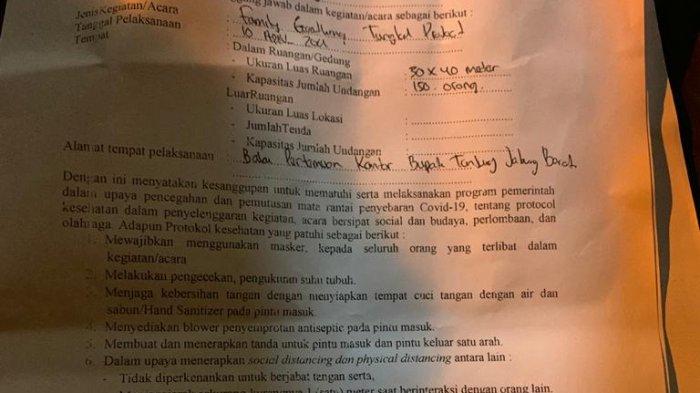 gung jawab dalam kegiatan/acara sebagai berikut :
JenisKegiatan/Acara Family Gathering Tungkal
Tanggal Pelaksanaan 10 April 2021
Tempat
: Dalam Ruangan/Gedung
- Ukuran Luas Ruangan : 30 x 40 meter
- Kapasitas Jumlah Undangan : 150 orang
LuarRuangan
- Ukuran Luas Lokasi :
- JumlahTenda :
- Kapasitas Jumlah Undangan :
Alamat tempat pelaksanaan : Balai Pertemuan Kantor Bupati Tanjung Jabung Barat
Dengan ini menyatakan kesanggupan untuk mematuhi serta melaksanakan program pemerintah
dalam upaya pencegahan dan pemutusan mata rantai penyebaran Covid-19, tentang protocol
kesehatan dalam penyelenggaran kegiatan, acara bersipat social dan budaya, perlombaan, dan
olahraga. Adapun Protokol kesehatan yang patuhi sebagai berikut :
1. Mewajibkan menggunakan masker, kepada seluruh orang yang terlibat dalam
kegiatan/acara
2. Melakukan pengecekan, pengukuran suhu tubuh.
3. Menjaga kebersihan tangan dengan menyiapkan tempat cuci tangan dengan air dan
sabun/Hand Sanitizer pada pintu masuk.
4. Menyediakan blower penyemprotan antiseptic pada pintu masuk.
5. Membuat dan menerapkan tanda untuk pintu masuk dan pintu keluar satu arah.
6. Dalam upaya menerapkan social distancing dan physical distancing antara lain :
- Tidak diperkenankan untuk berjabat tangan serta,
- kurangnya 1 (satu) meter saat berinteraksi dengan orang lain.